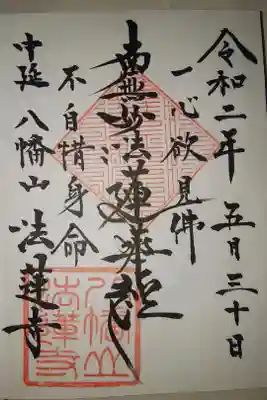 令和二年 五月三十日
一心欲見佛
南無妙法蓮華経
不自惜身命
中延 八幡山 法蓮寺